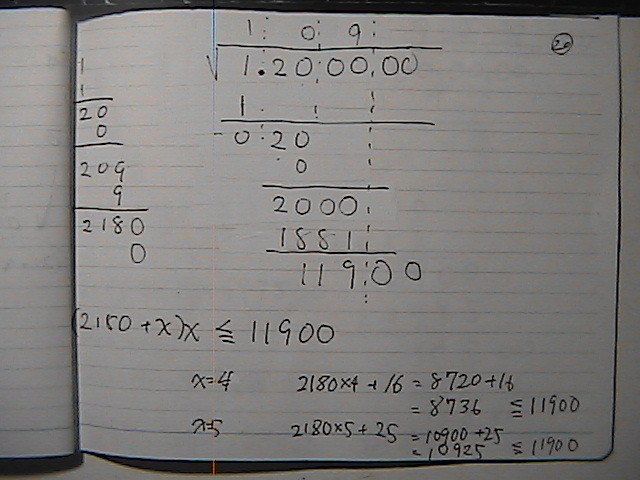 1 0 9
20
√1.20 00 00
1
1
1
20
-0 20
0
0
209
2000
9
1881
2180
119 00
0
(2180 + x)x ≦ 11900
x=4 2180×4 + 16 = 8720+16
= 8736 ≦ 11900
x=5 2180×5 + 25 = 10900 +25
= 10925 ≦ 11900